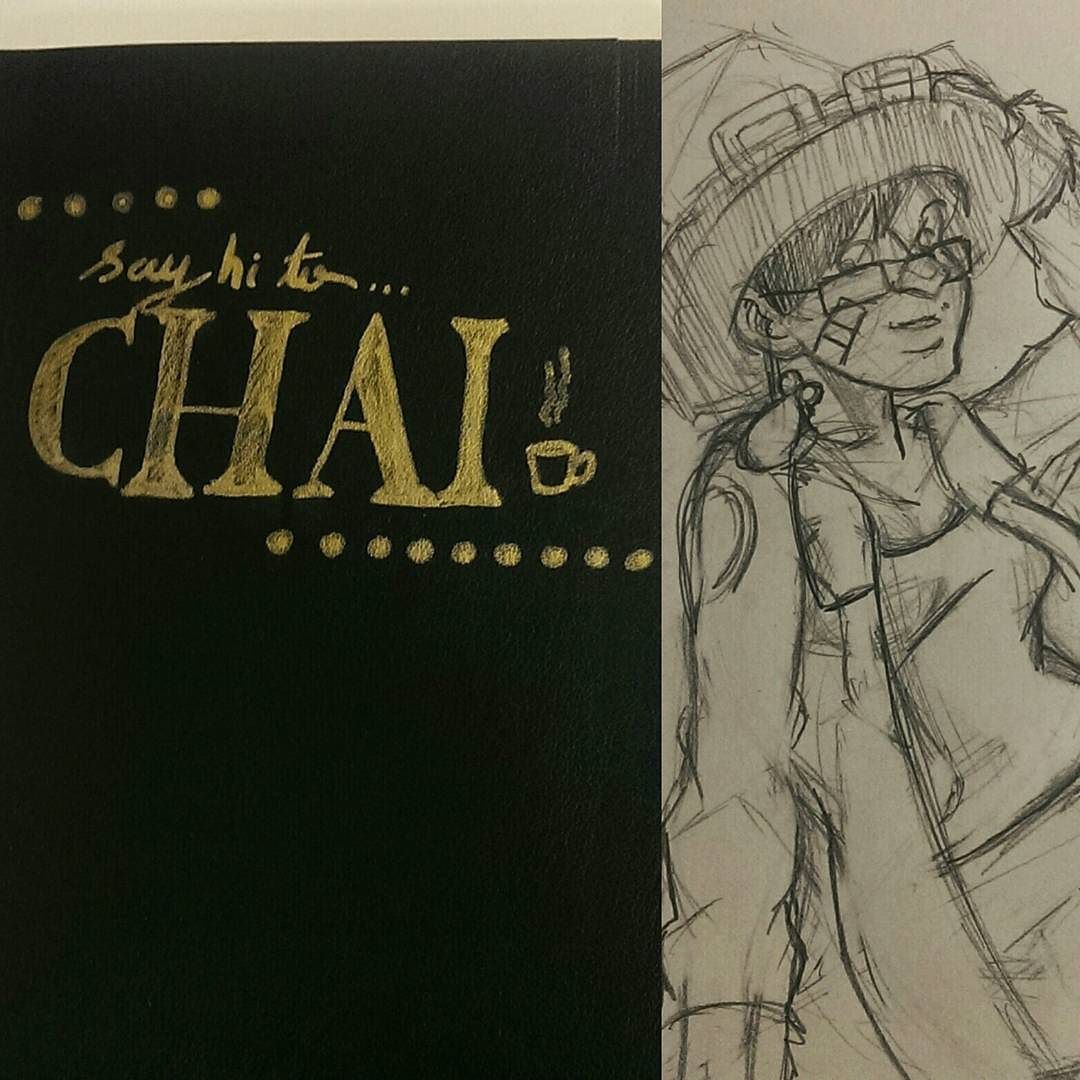 say hi to...
CHAI